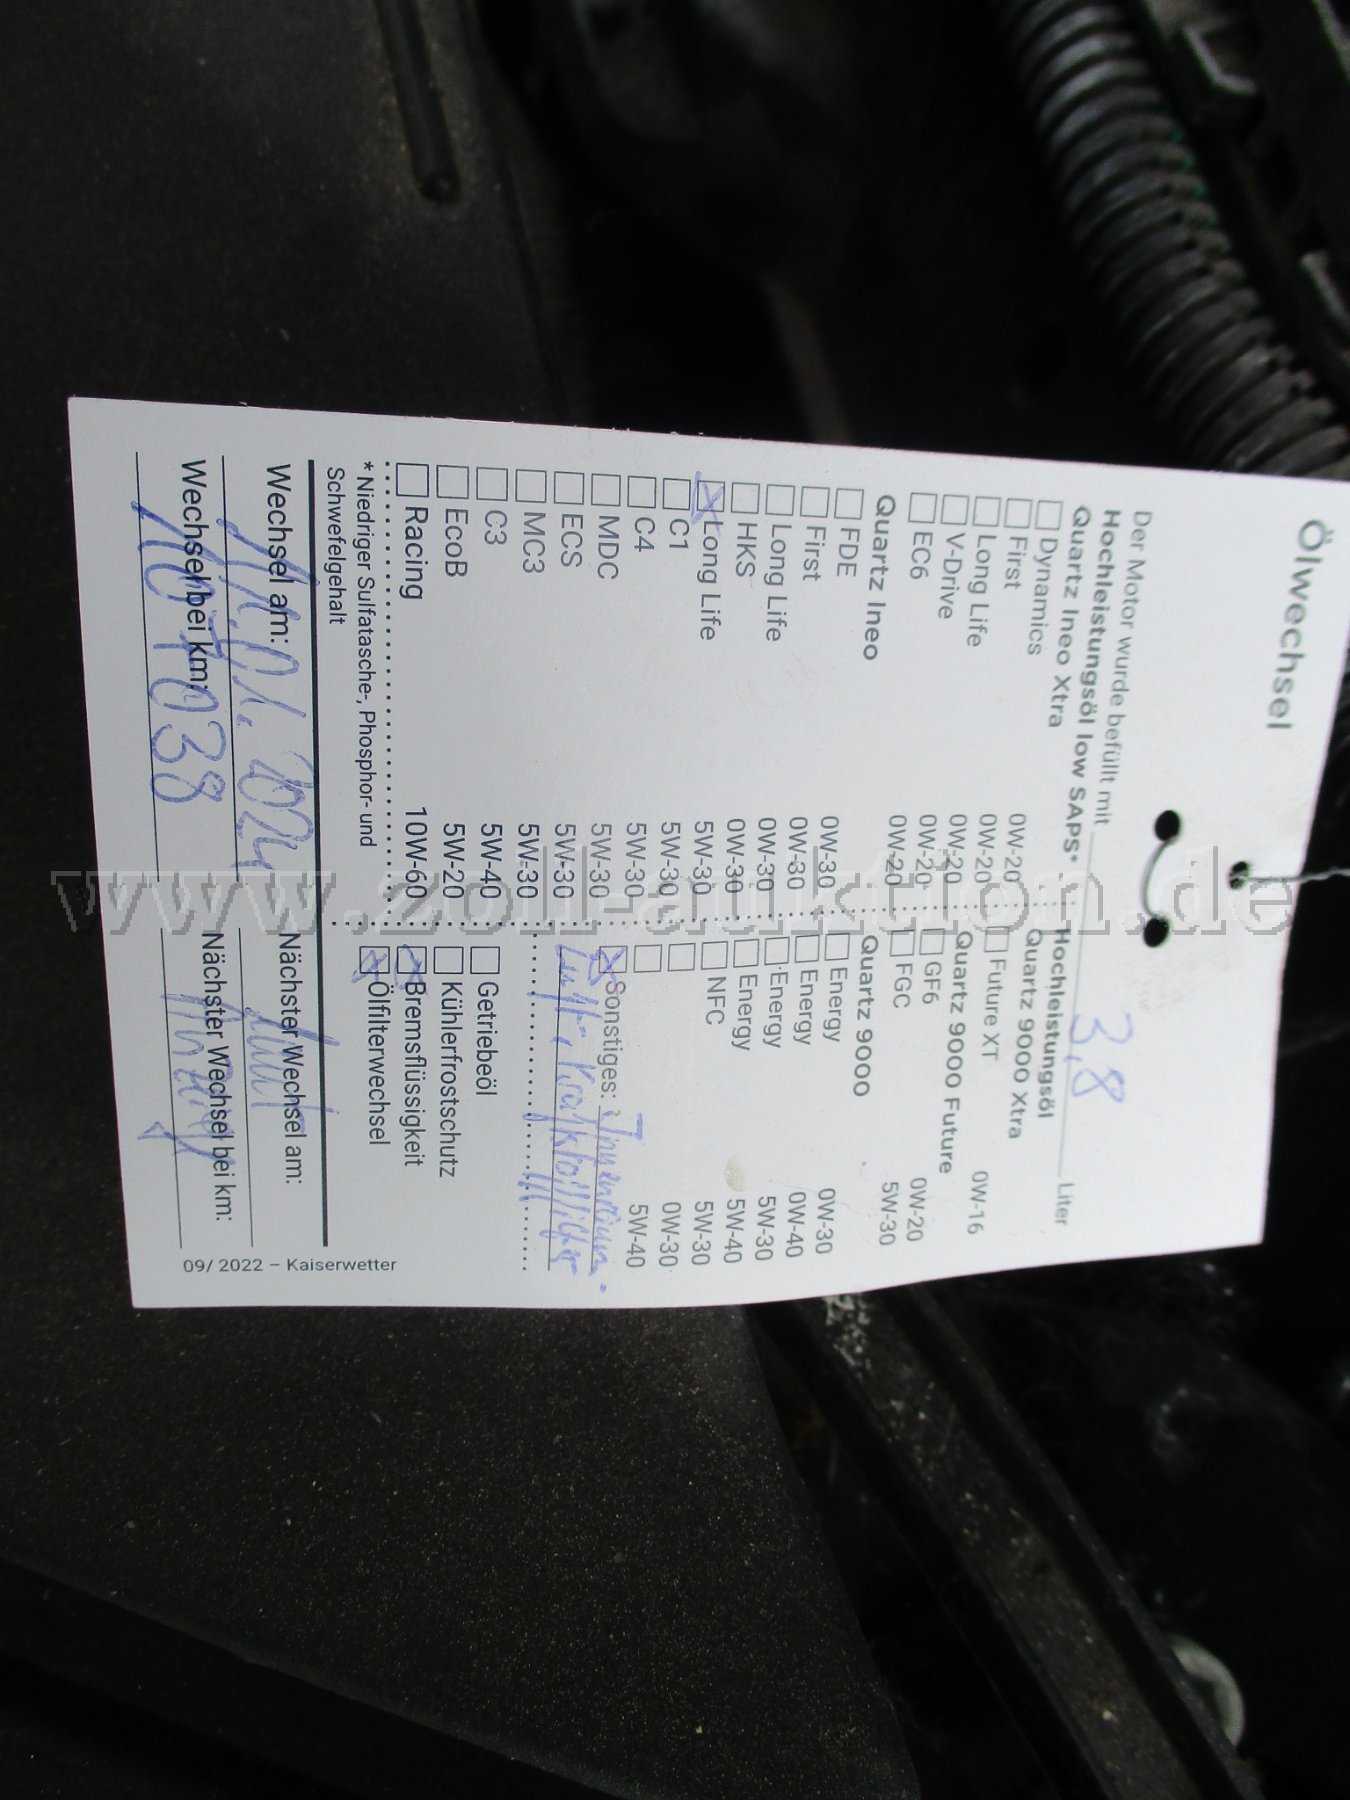 Ölwechsel
Der Motor wurde befüllt mit 3,8 Liter
Hochleistungsöl low SAPS*
Quartz Ineo Xtra
Dynamics 0W-20
First 0W-20
Long Life 0W-20
V-Drive 0W-20
EC6 0W-20
Quartz Ineo
FDE 0W-30
First 0W-30
Long Life 0W-30
HKS 0W-30
Long Life 5W-30
C1 5W-30
C4 5W-30
MDC 5W-30
ECS 5W-30
MC3 5W-30
C3 5W-40
EcoB 5W-20
Racing 10W-60
* Niedriger Sulfatasche-, Phosphor- und
Schwefelgehalt
Hochleistungsöl
Quartz 9000 Xtra
Future XT 0W-16
Quartz 9000 Future
GF6 0W-20
FGC 5W-30
Quartz 9000
Energy 0W-30
Energy 0W-40
Energy 5W-30
Energy 5W-40
NFC 5W-30
0W-30
5W-40
Sonstiges: Innenraum-
Luft-, Kraftstofffilter
Getriebeöl
Kühlerfrostschutz
Bremsflüssigkeit
Ölfilterwechsel
Wechsel am: 11.01.2024
Nächster Wechsel am: laut
Wechsel bei km: 107038
Nächster Wechsel bei km:
09/ 2022 – Kaiserwetter
www.zoll-auktion.de